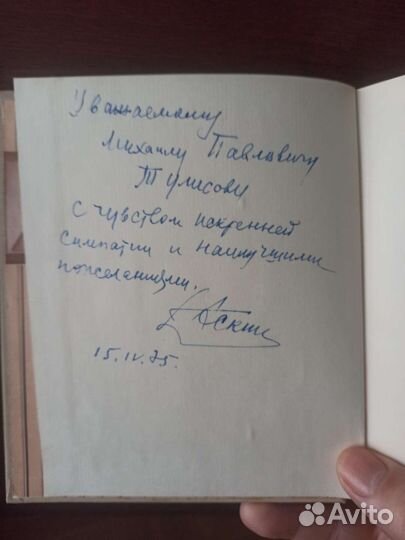 Уважаемому
Михаилу Павловичу
Тулисову
с чувством искренней
симпатии и наилучшими
пожеланиями.
15.IV.75.
Avito